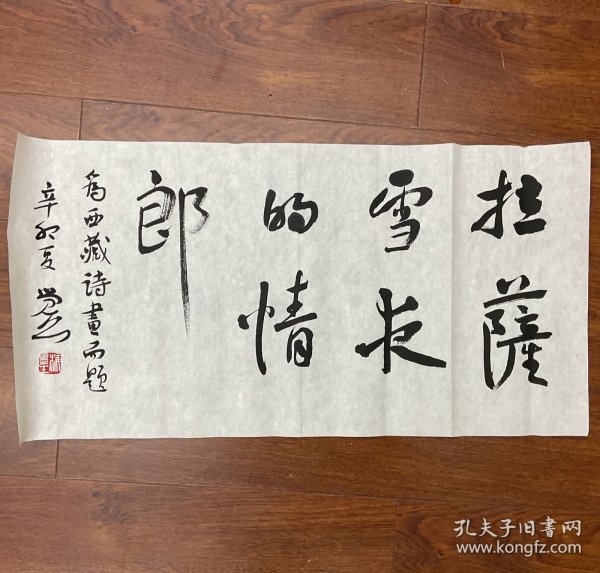 拉薩
雪夜
的情
郎
為西藏詩畫而題
辛卯夏
孔夫子旧书网
www.kongfz.com